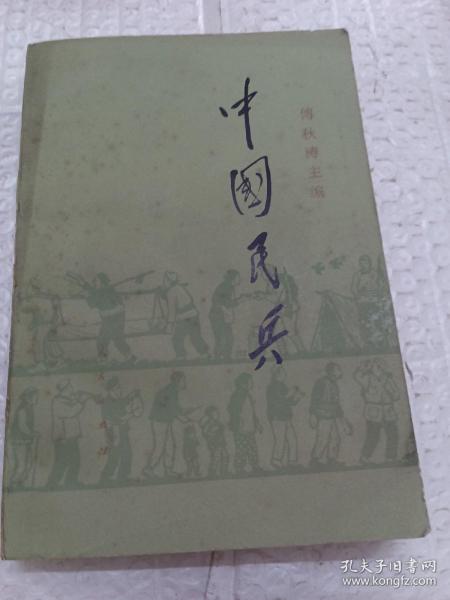 中國民兵
傅秋涛主编
孔夫子旧书网
www.kongfz.com